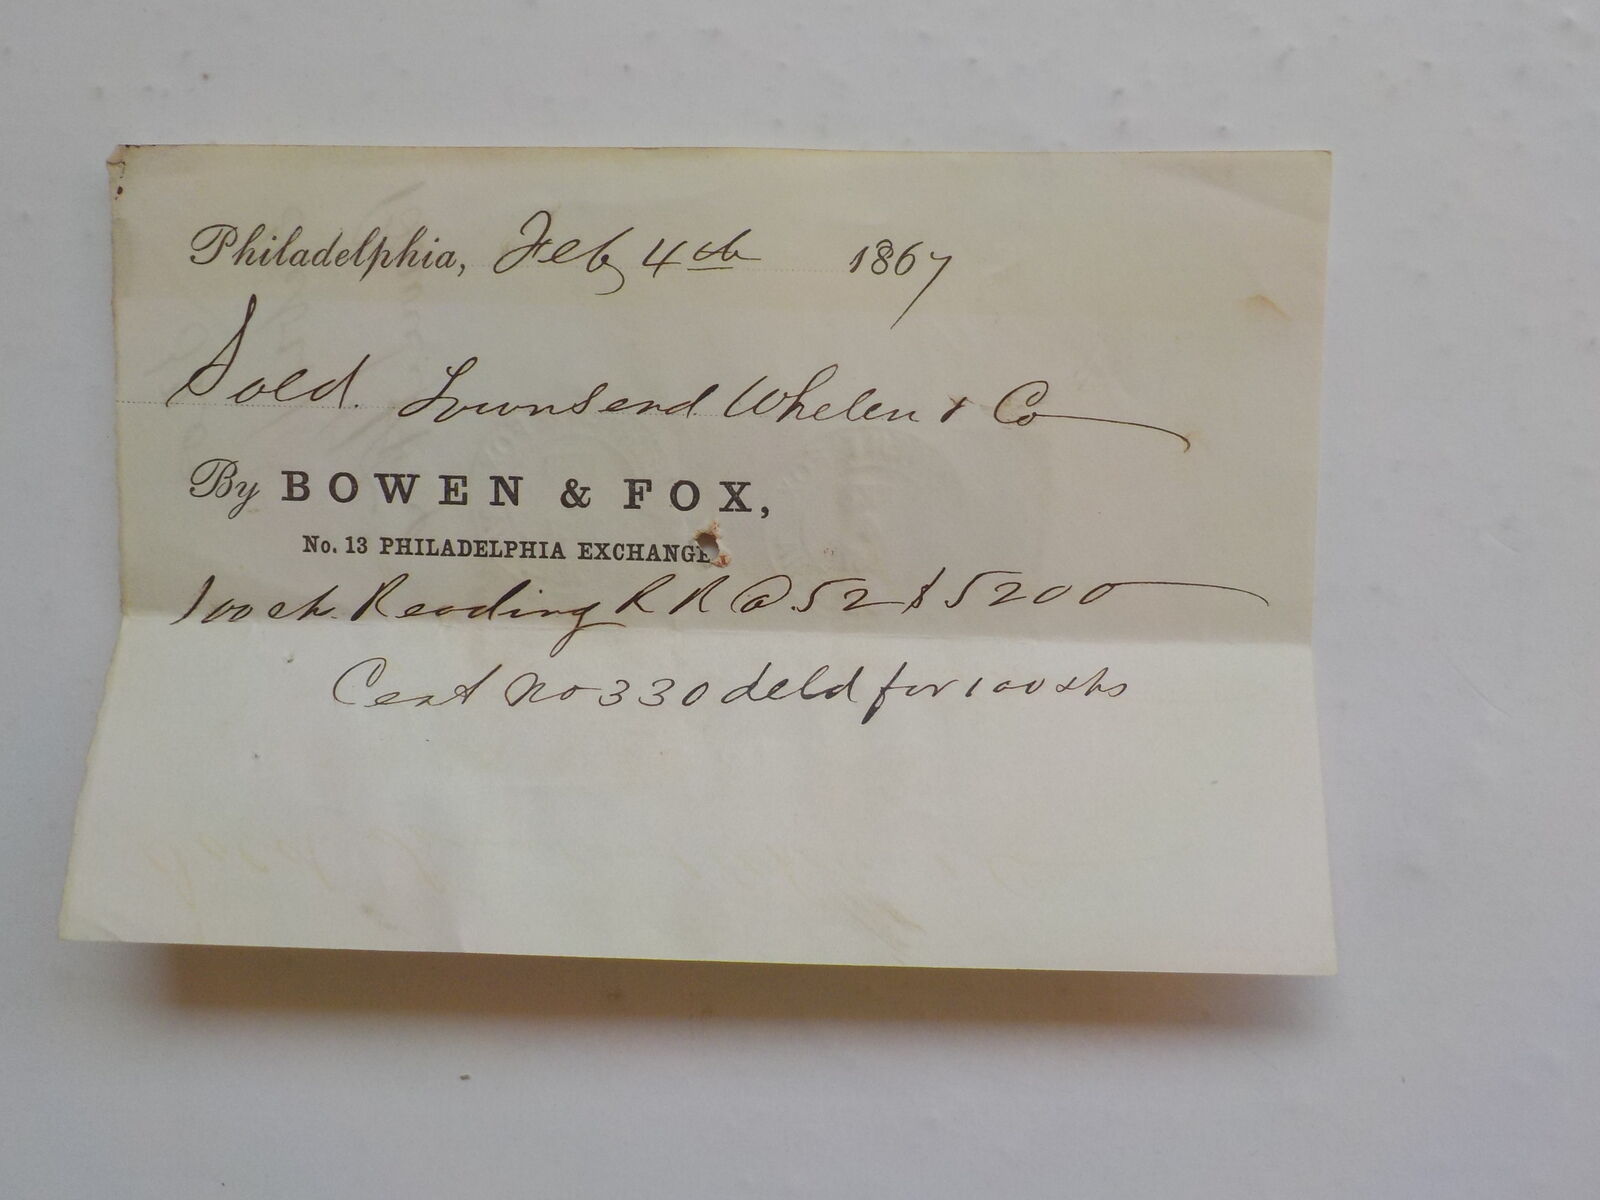 Philadelphia, Feby 4th 1867
Sold. Townsend Whelen & Co
By BOWEN & FOX,
No. 13 PHILADELPHIA EXCHANGE
100 sh. Reading R R @ 52 $5200
Cert No 330 deld for 100 shs